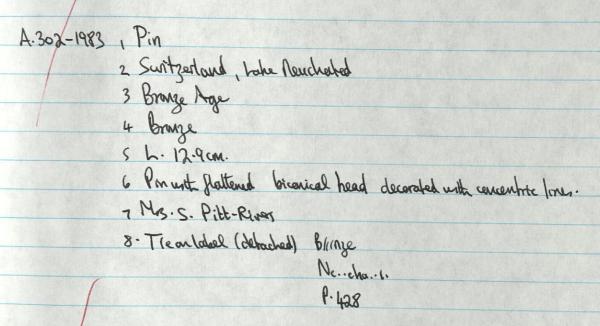 A.302-1983 1 Pin
2 Switzerland, Lake Neuchated
3 Bronze Age
4 Bronze
5 L. 12.9cm.
6 Pin with flattened biconical head decorated with concentric lines.
7 Mrs. S. Pitt-Rivers
8. Tie on label (detached) Bronze
Ne..cha..l.
P.428